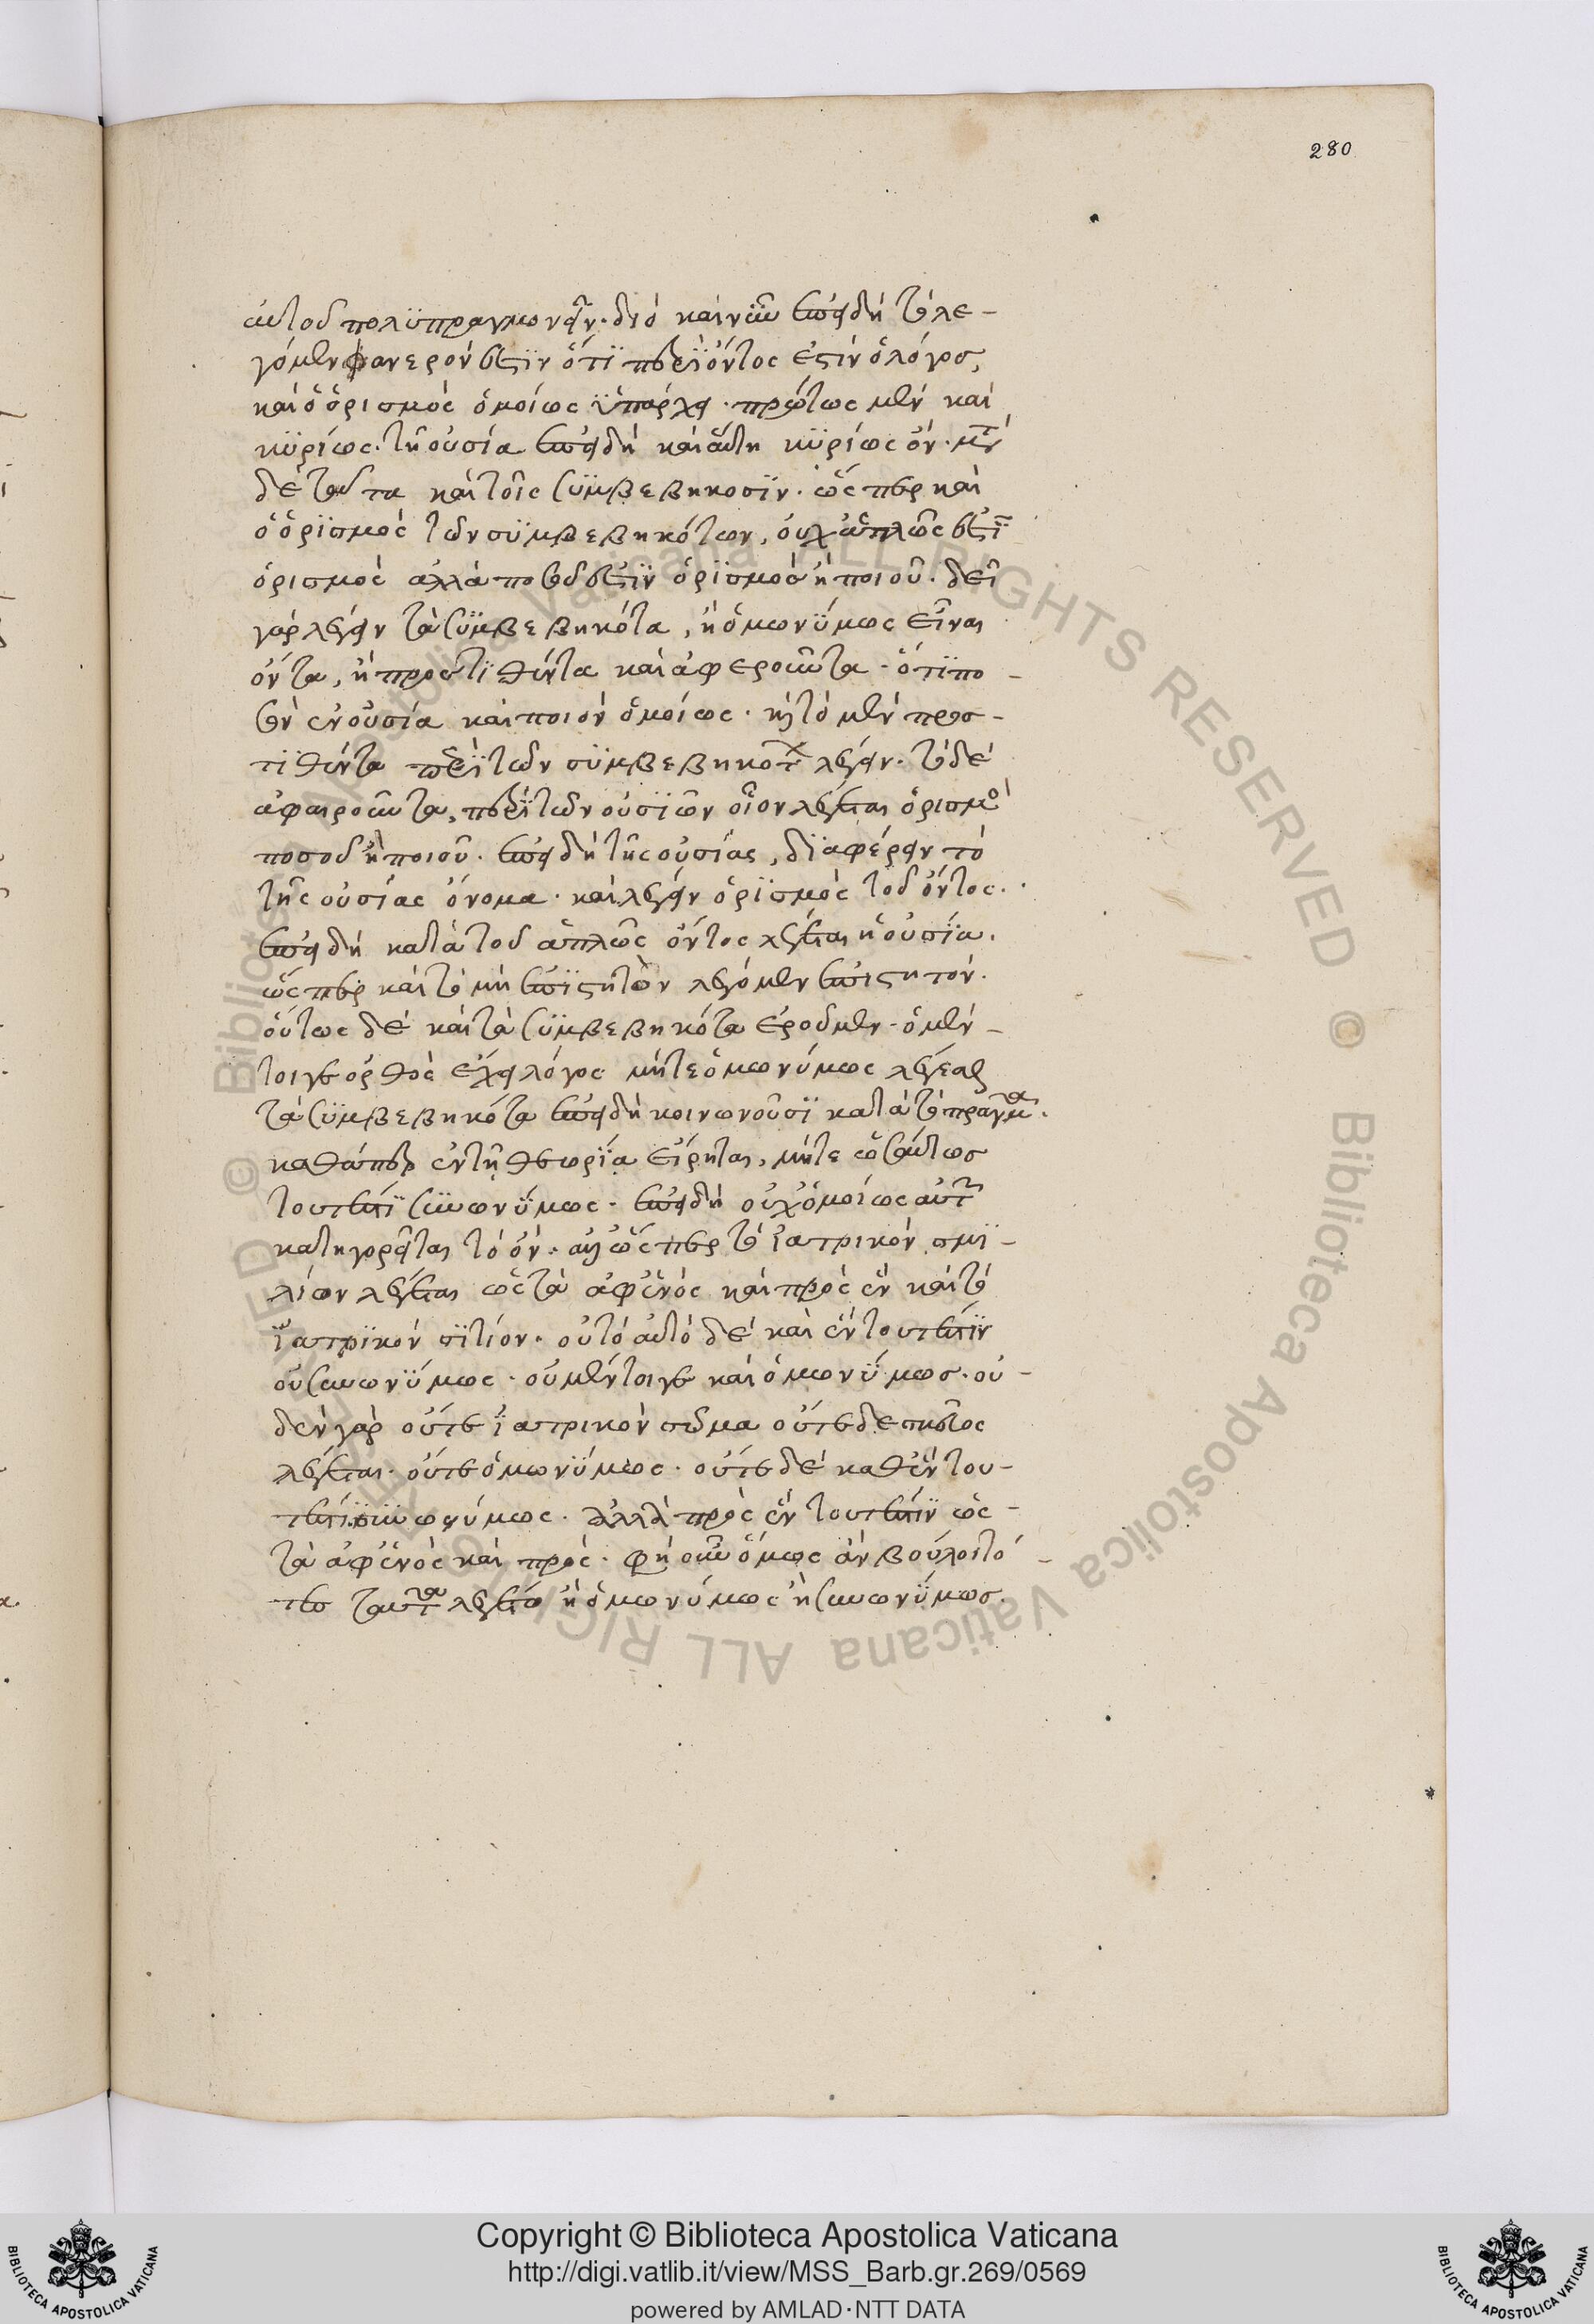 280
αυτοῦ πολϋπραγμονεῖν. διὸ καὶ νῦν ἐπειδὴ τὸ λε-
γόμεν φανερόν ἐστϊν ὅτϊ περὶ ὄντος ἐστὶν ὁ λόγος,
καὶ ὁ ὁρισμὸς ὁμοίως ϋπάρχει. πρώτως μὲν καὶ
κϋρίως. τῇ οὐσία ἐπειδὴ καὶ αὕτη κϋρίως ὄν. μετὰ
δὲ ταῦτα καὶ τοῖς σϋμβεβηκοσϊν. ὥς περ καὶ
ὁ ὁρϊσμὸς τῶν σϋμβεβηκότων, οὐχ ἁπλῶς ἐστὶ
ὁρισμὸς ἀλλὰ ποσοῦ ἐστϊν ὁρϊσμὸσ ἢ ποιοῦ. δεῖ
γὰρ λέγειν τὰ σϋμβεβηκότα, ἢ ὁμωνϋμως εἶναι
ὄντα, ἢ προστϊθέντα καὶ ἀφεροῦντα. ὅτϊ πο-
σὸν ἐνοὐσία καὶ ποιὸν ὁμοίως. καὶ τὸ μὲν προσ-
τϊθέντα περὶ τῶν σϋμβεβηκότων λέγειν. τὸ δὲ
ἀφαιροῦντα, περὶ τῶν οὐσϊῶν οἷον λέγεται ὁρισμὸς
ποσοῦ ἢ ποιοῦ. ἐπειδὴ τῆς οὐσίας, δϊαφέρειν τὸ
τῆς οὐσίας ὄνομα. καὶ λέγειν ὁρϊσμὸς τοῦ ὄντος.
ἐπειδὴ κατὰ τοῦ ἁπλῶς ὄντος λέγεται ἡ οὐσϊα.
ὥς περ καὶ τὸ μὴ ἐπϊστητὸν λεγόμεν ἐπιστητόν.
οὕτως δὲ καὶ τὰ σϋμβεβηκότα ἐροῦμεν. ὁ μέν-
τοιγε ὀρθὸς ἔχει λόγος μήτε ὁμωνύμως λέγεσθαι
τὰ σϋμβεβηκότα ἐπειδὴ κοινωνοῦσϊ κατὰ τὸ πρᾶγμα.
καθάπερ ἐν τῇ θεωρϊα εἴρηται, μήτε ὡσαύτωσ
τουτέστϊ σϋνωνϋμως. ἐπειδὴ οὐχ ὁμοίως αὐτῶν
κατηγορεῖται τὸ ὄν. ἀλλ' ὥς περ τὸ ἰατρικὸν σμϊ-
λίον λέγεται ὡς τὰ ἀφ' ἑνὸς καὶ πρὸς ἓν καὶ τὸ
ϊατρϊκὸν σϊτίον. οὐ τὸ αὐτὸ δὲ καὶ ἓν τουτέστϊν
οὐ συνωνϋμως. οὐ μέντοιγε καὶ ὁμωνϋμωσ. οὐ-
δὲν γὰρ οὔτε ἰατρικὸν σῶμα οὔτε δε σκεῦος
λέγεται. οὔτε ὁμωνϋμως. οὔτε δὲ καθ' ἓν του-
τέστϊ σϋνωνύμως. ἀλλὰ πρὸς ἓν τουτέστϊν ὡς-
τὰ ἀφ' ἑνὸς καὶ πρός. εἰ οὖν ὅμως ἂν βούλοιτό-
τισ ταῦτα λεγέτω ἢ ὁμωνύμως ἢ συνωνϋμωσ.
Copyright © Biblioteca Apostolica Vaticana
http://digi.vatlib.it/view/MSS_Barb.gr.269/0569
powered by AMLAD·NTT DATA